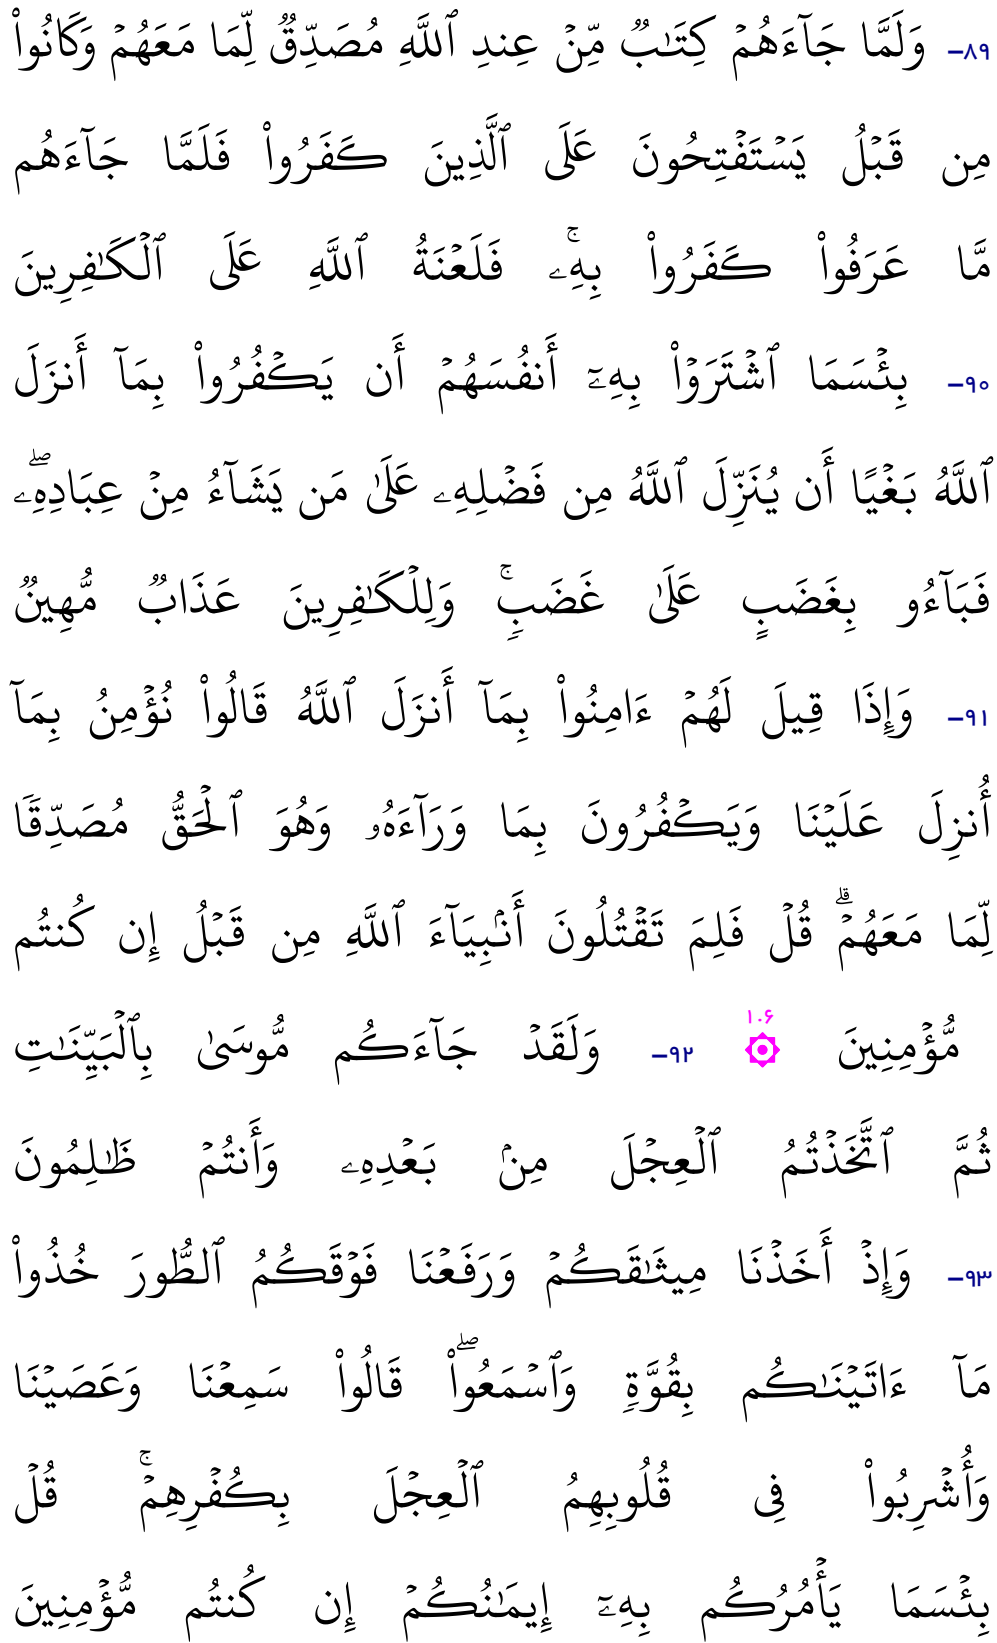 ۸۹- وَلَمَّا جَآءَهُمۡ كِتَٰبٞ مِّنۡ عِندِ ٱللَّهِ مُصَدِّقٞ لِّمَا مَعَهُمۡ وَكَانُواْ
مِن قَبۡلُ يَسۡتَفۡتِحُونَ عَلَى ٱلَّذِينَ كَفَرُواْ فَلَمَّا جَآءَهُم
مَّا عَرَفُواْ كَفَرُواْ بِهِۦۚ فَلَعۡنَةُ ٱللَّهِ عَلَى ٱلۡكَٰفِرِينَ
۹۰- بِئۡسَمَا ٱشۡتَرَوۡاْ بِهِۦٓ أَنفُسَهُمۡ أَن يَكۡفُرُواْ بِمَآ أَنزَلَ
ٱللَّهُ بَغۡيًا أَن يُنَزِّلَ ٱللَّهُ مِن فَضۡلِهِۦ عَلَىٰ مَن يَشَآءُ مِنۡ عِبَادِهِۦۖ
فَبَآءُو بِغَضَبٍ عَلَىٰ غَضَبٖۚ وَلِلۡكَٰفِرِينَ عَذَابٞ مُّهِينٞ
۹۱- وَإِذَا قِيلَ لَهُمۡ ءَامِنُواْ بِمَآ أَنزَلَ ٱللَّهُ قَالُواْ نُؤۡمِنُ بِمَآ
أُنزِلَ عَلَيۡنَا وَيَكۡفُرُونَ بِمَا وَرَآءَهُۥ وَهُوَ ٱلۡحَقُّ مُصَدِّقٗا
لِّمَا مَعَهُمۡۗ قُلۡ فَلِمَ تَقۡتُلُونَ أَنۢبِيَآءَ ٱللَّهِ مِن قَبۡلُ إِن كُنتُم
مُّؤۡمِنِينَ ۞ ۱۰۶ ۹۲- وَلَقَدۡ جَآءَكُم مُّوسَىٰ بِٱلۡبَيِّنَٰتِ
ثُمَّ ٱتَّخَذۡتُمُ ٱلۡعِجۡلَ مِنۢ بَعۡدِهِۦ وَأَنتُمۡ ظَٰلِمُونَ
۹۳- وَإِذۡ أَخَذۡنَا مِيثَٰقَكُمۡ وَرَفَعۡنَا فَوۡقَكُمُ ٱلطُّورَ خُذُواْ
مَآ ءَاتَيۡنَٰكُم بِقُوَّةٖ وَٱسۡمَعُواْۖ قَالُواْ سَمِعۡنَا وَعَصَيۡنَا
وَأُشۡرِبُواْ فِي قُلُوبِهِمُ ٱلۡعِجۡلَ بِكُفۡرِهِمۡۚ قُلۡ
بِئۡسَمَا يَأۡمُرُكُم بِهِۦٓ إِيمَٰنُكُمۡ إِن كُنتُم مُّؤۡمِنِينَ